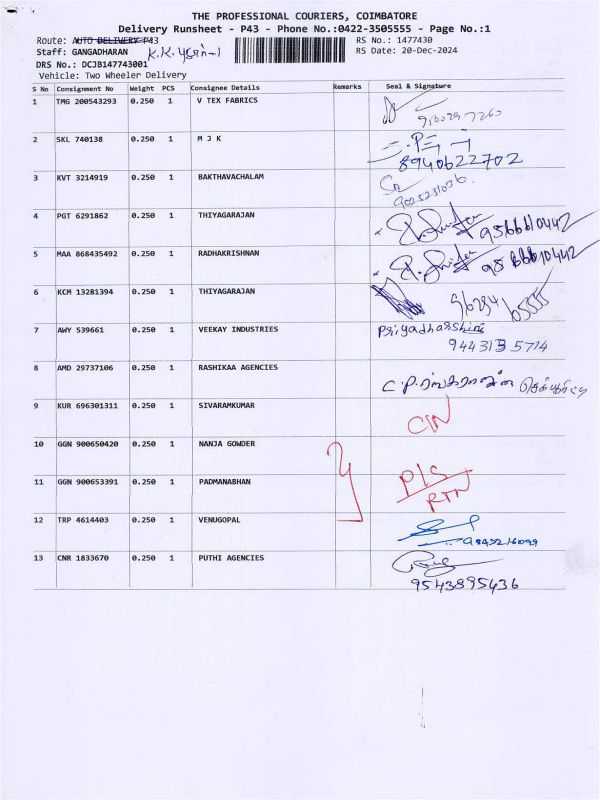 THE PROFESSIONAL COURIERS, COIMBATORE
Delivery Runsheet - P43 - Phone No.:0422-3505555 - Page No.:1
Route: AUTO DELIVERY P43
RS No.: 1477430
Staff: GANGADHARAN K.K.புதூர்-1
RS Date: 20-Dec-2024
DRS No.: DCJB147743001
Vehicle: Two Wheeler Delivery
S No Consignment No Weight PCS Consignee Details Remarks Seal & Signature
1 TMG 200543293 0.250 1 V TEX FABRICS
2 SKL 740138 0.250 1 M J K
8940622702
3 KVT 3214919 0.250 1 BAKTHAVACHALAM
4 PGT 6291862 0.250 1 THIYAGARAJAN 9566610442
5 MAA 868435492 0.250 1 RADHAKRISHNAN 9566610442
6 KCM 13281394 0.250 1 THIYAGARAJAN
7 AWY 539661 0.250 1 VEEKAY INDUSTRIES Priyadharshini
944313 5714
8 AMD 29737106 0.250 1 RASHIKAA AGENCIES C.P.
9 KUR 696301311 0.250 1 SIVARAMKUMAR CIN
10 GGN 900650420 0.250 1 NANJA GOWDER
11 GGN 900653391 0.250 1 PADMANABHAN P/S
RTN
12 TRP 4614403 0.250 1 VENUGOPAL
9843216099
13 CNR 1833670 0.250 1 PUTHI AGENCIES
9543895436